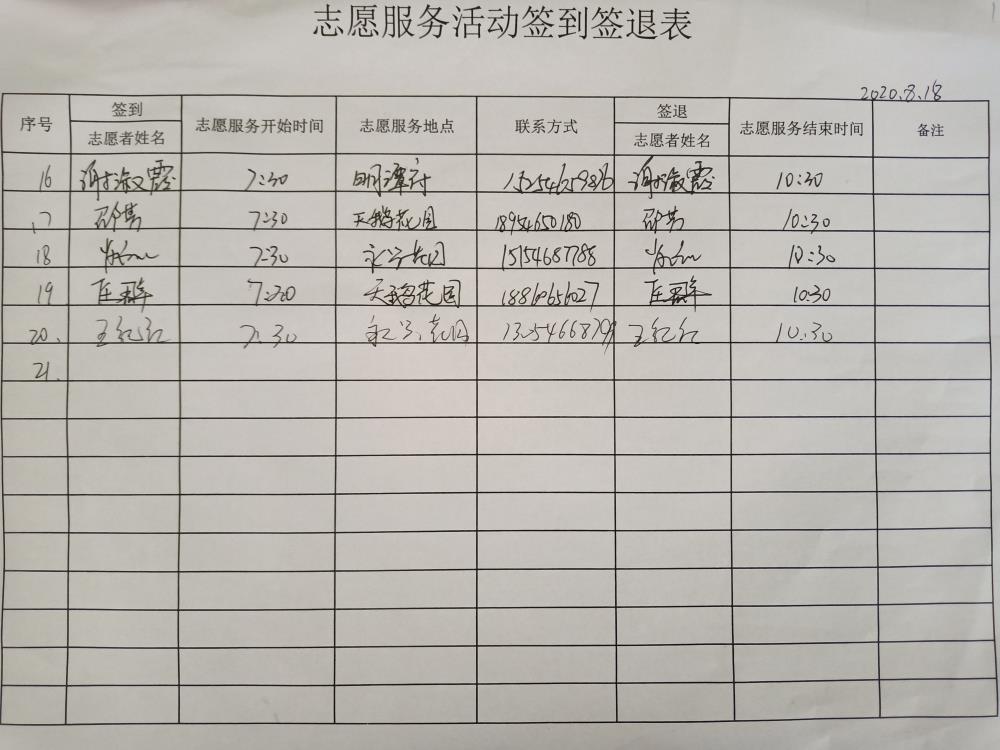 志愿服务活动签到签退表
2020.8.18
序号 签到 志愿者姓名 志愿服务开始时间 志愿服务地点 联系方式 签退 志愿者姓名 志愿服务结束时间 备注
16 谢淑霞 7:30 明潭府 15254659876 谢淑霞 10:30
17 邵芳 7:30 天鹅花园 18954650180 邵芳 10:30
18 7:30 花园 15154687788 10:30
19 7:30 天鹅花园 18860656027 10:30
20. 王红红 7:30 花园 王红红 10:30
21.